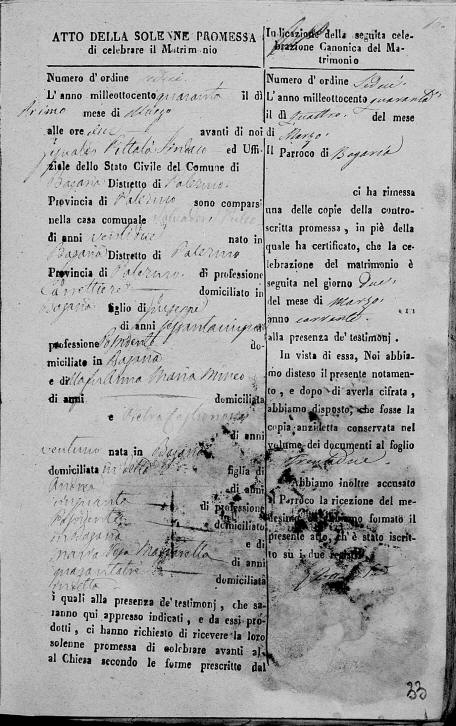 ATTO DELLA SOLENNE PROMESSA
di celebrare il Matrimonio
Numero d'ordine sedici
L'anno milleottocento quaranta il dì
Primo mese di Marzo
alle ore avanti di noi
Pittalà Sindaco ed Uffi-
ziale dello Stato Civile del Comune di
Bagaria Distretto di Palermo
Provincia di Palermo sono comparsi
nella casa comunale
di anni ventidue nato in
Bagaria Distretto di Palermo
Provincia di Palermo di professione
Carrettiere domiciliato in
Bagaria figlio di Giuseppe
di anni sessantacinque
professione Possidente do-
miciliato in Bagaria
e di Anna Maria Mineo
di anni domiciliata
e
di anni
ventuno nata in Bagaria
domiciliata in detta figlia di
Andrea
cinquanta di anni
di professione
in Bagaria domiciliato
e di
Maria
quarantatre di anni
in detta domiciliata
i quali alla presenza de'testimonj, che sa-
ranno qui appresso indicati, e da essi pro-
dotti, ci hanno richiesto di ricevere la loro
solenne promessa di celebrare avanti al-
la Chiesa secondo le forme prescritte dal
Indicazione della seguita cele-
brazione Canonica del Ma-
trimonio
Numero d'ordine Sedici
L'anno milleottocento quaranta
il dì quattro del mese
di Marzo
Il Parroco di Bagaria
ci ha rimessa
una delle copie della contro-
scritta promessa, in piè della
quale ha certificato, che la ce-
lebrazione del matrimonio è
seguita nel giorno Due
del mese di Marzo
anno corrente
alla presenza de' testimonj.
In vista di essa, Noi abbia-
mo disteso il presente notamen-
to, e dopo di averla cifrata,
abbiamo disposto, che fosse la
copia anzidetta conservata nel
volume dei documenti al foglio
Abbiamo inoltre accusato
al Parroco la ricezione del me-
desimo abbiamo formato il
presente atto, ch'è stato iscrit-
to su i due registri
33